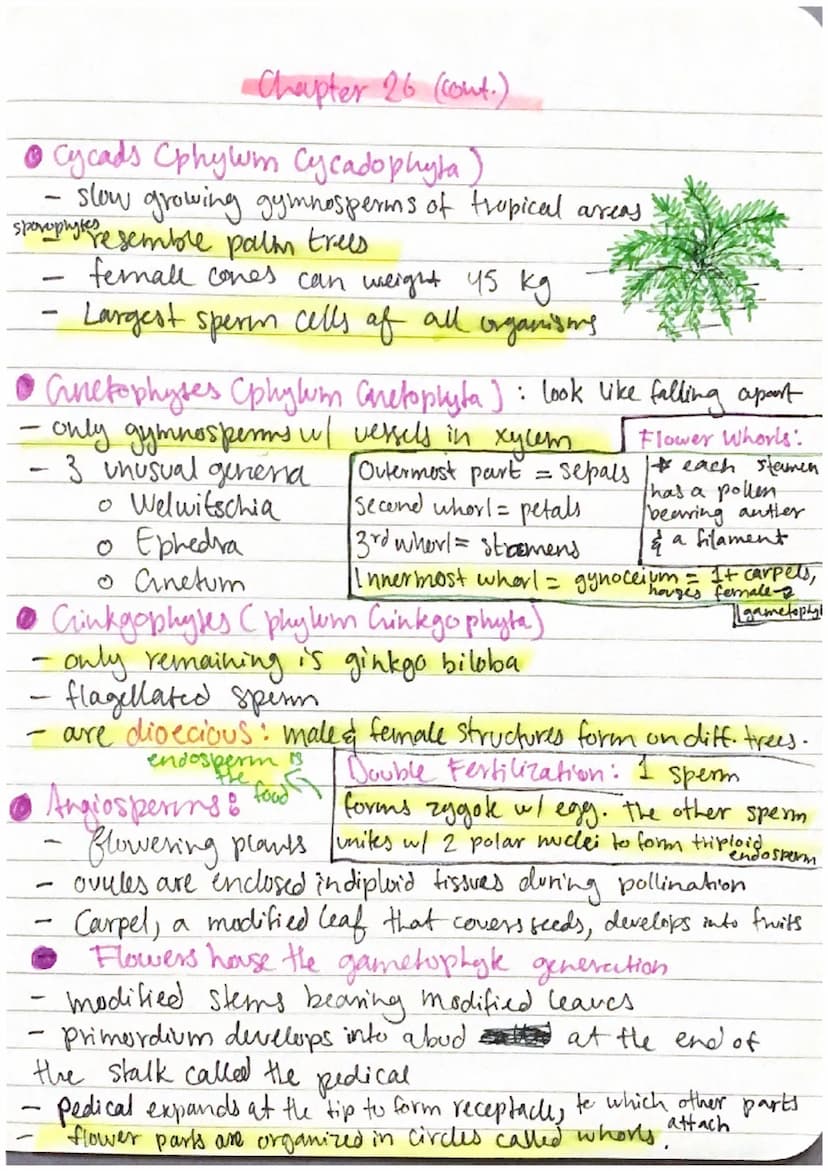 Chapter 26 (cont.)
Cycads (phylum Cycadophyta)
- slow growing gymnosperms of tropical areas
sporophytes
- resemble palm trees
- female cones can weight 45 kg
- Largest sperm cells of all organisms
Gnetophytes (phylum Gnetophyta) : look like falling apart
- only gymnosperms w/ vessels in xylem
- 3 unusual genera
o Welwitschia
o Ephedra
o Gnetum
Flower Whorls:
* each stamen
has a pollen
bearing anther
& a filament
Outermost part = sepals
second whorl = petals
3rd whorl = stamens
Innermost whorl = gynoceium = 1+ carpels,
houses female →
gametophyt
Ginkgophytes (phylum Ginkgophyta)
- only remaining is ginkgo biloba
- flagellated sperm
- are dioecious: male & female structures form on diff. trees.
endosperm is
the food
Double Fertilization: 1 sperm
forms zygote w/ egg. the other sperm
unites w/ 2 polar nuclei to form triploid
endosperm
Angiosperms:
- flowering plants
- ovules are enclosed in diploid tissues during pollination
- Carpel, a modified leaf that covers seeds, develops into fruits
Flowers house the gametophyte generation
- modified stems bearing modified leaves
- primordium develops into a bud at the end of
the stalk called the pedical
- Pedical expands at the tip to form receptacle, to which other parts
attach
- flower parts are organized in circles called whorls.